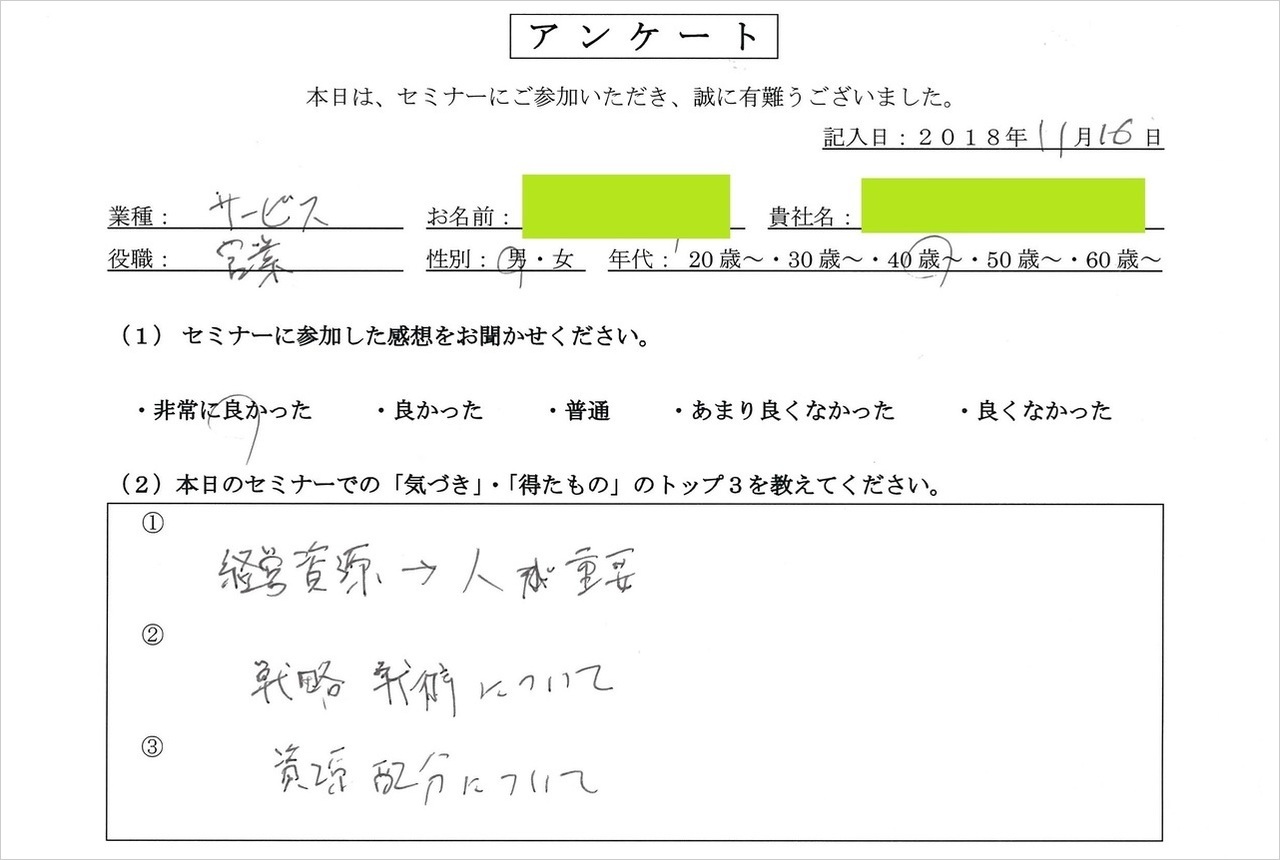 アンケート
本日は、セミナーにご参加いただき、誠に有難うございました。
記入日：２０１８年 11 月 16 日
業種： サービス お名前： 貴社名：
役職： 営業 性別： 男・女 年代： 20歳～・30歳～・40歳～・50歳～・60歳～
（１） セミナーに参加した感想をお聞かせください。
・非常に良かった ・良かった ・普通 ・あまり良くなかった ・良くなかった
（２）本日のセミナーでの「気づき」・「得たもの」のトップ３を教えてください。
①
経営資源→人が重要
②
戦略 戦術について
③
資源配分について